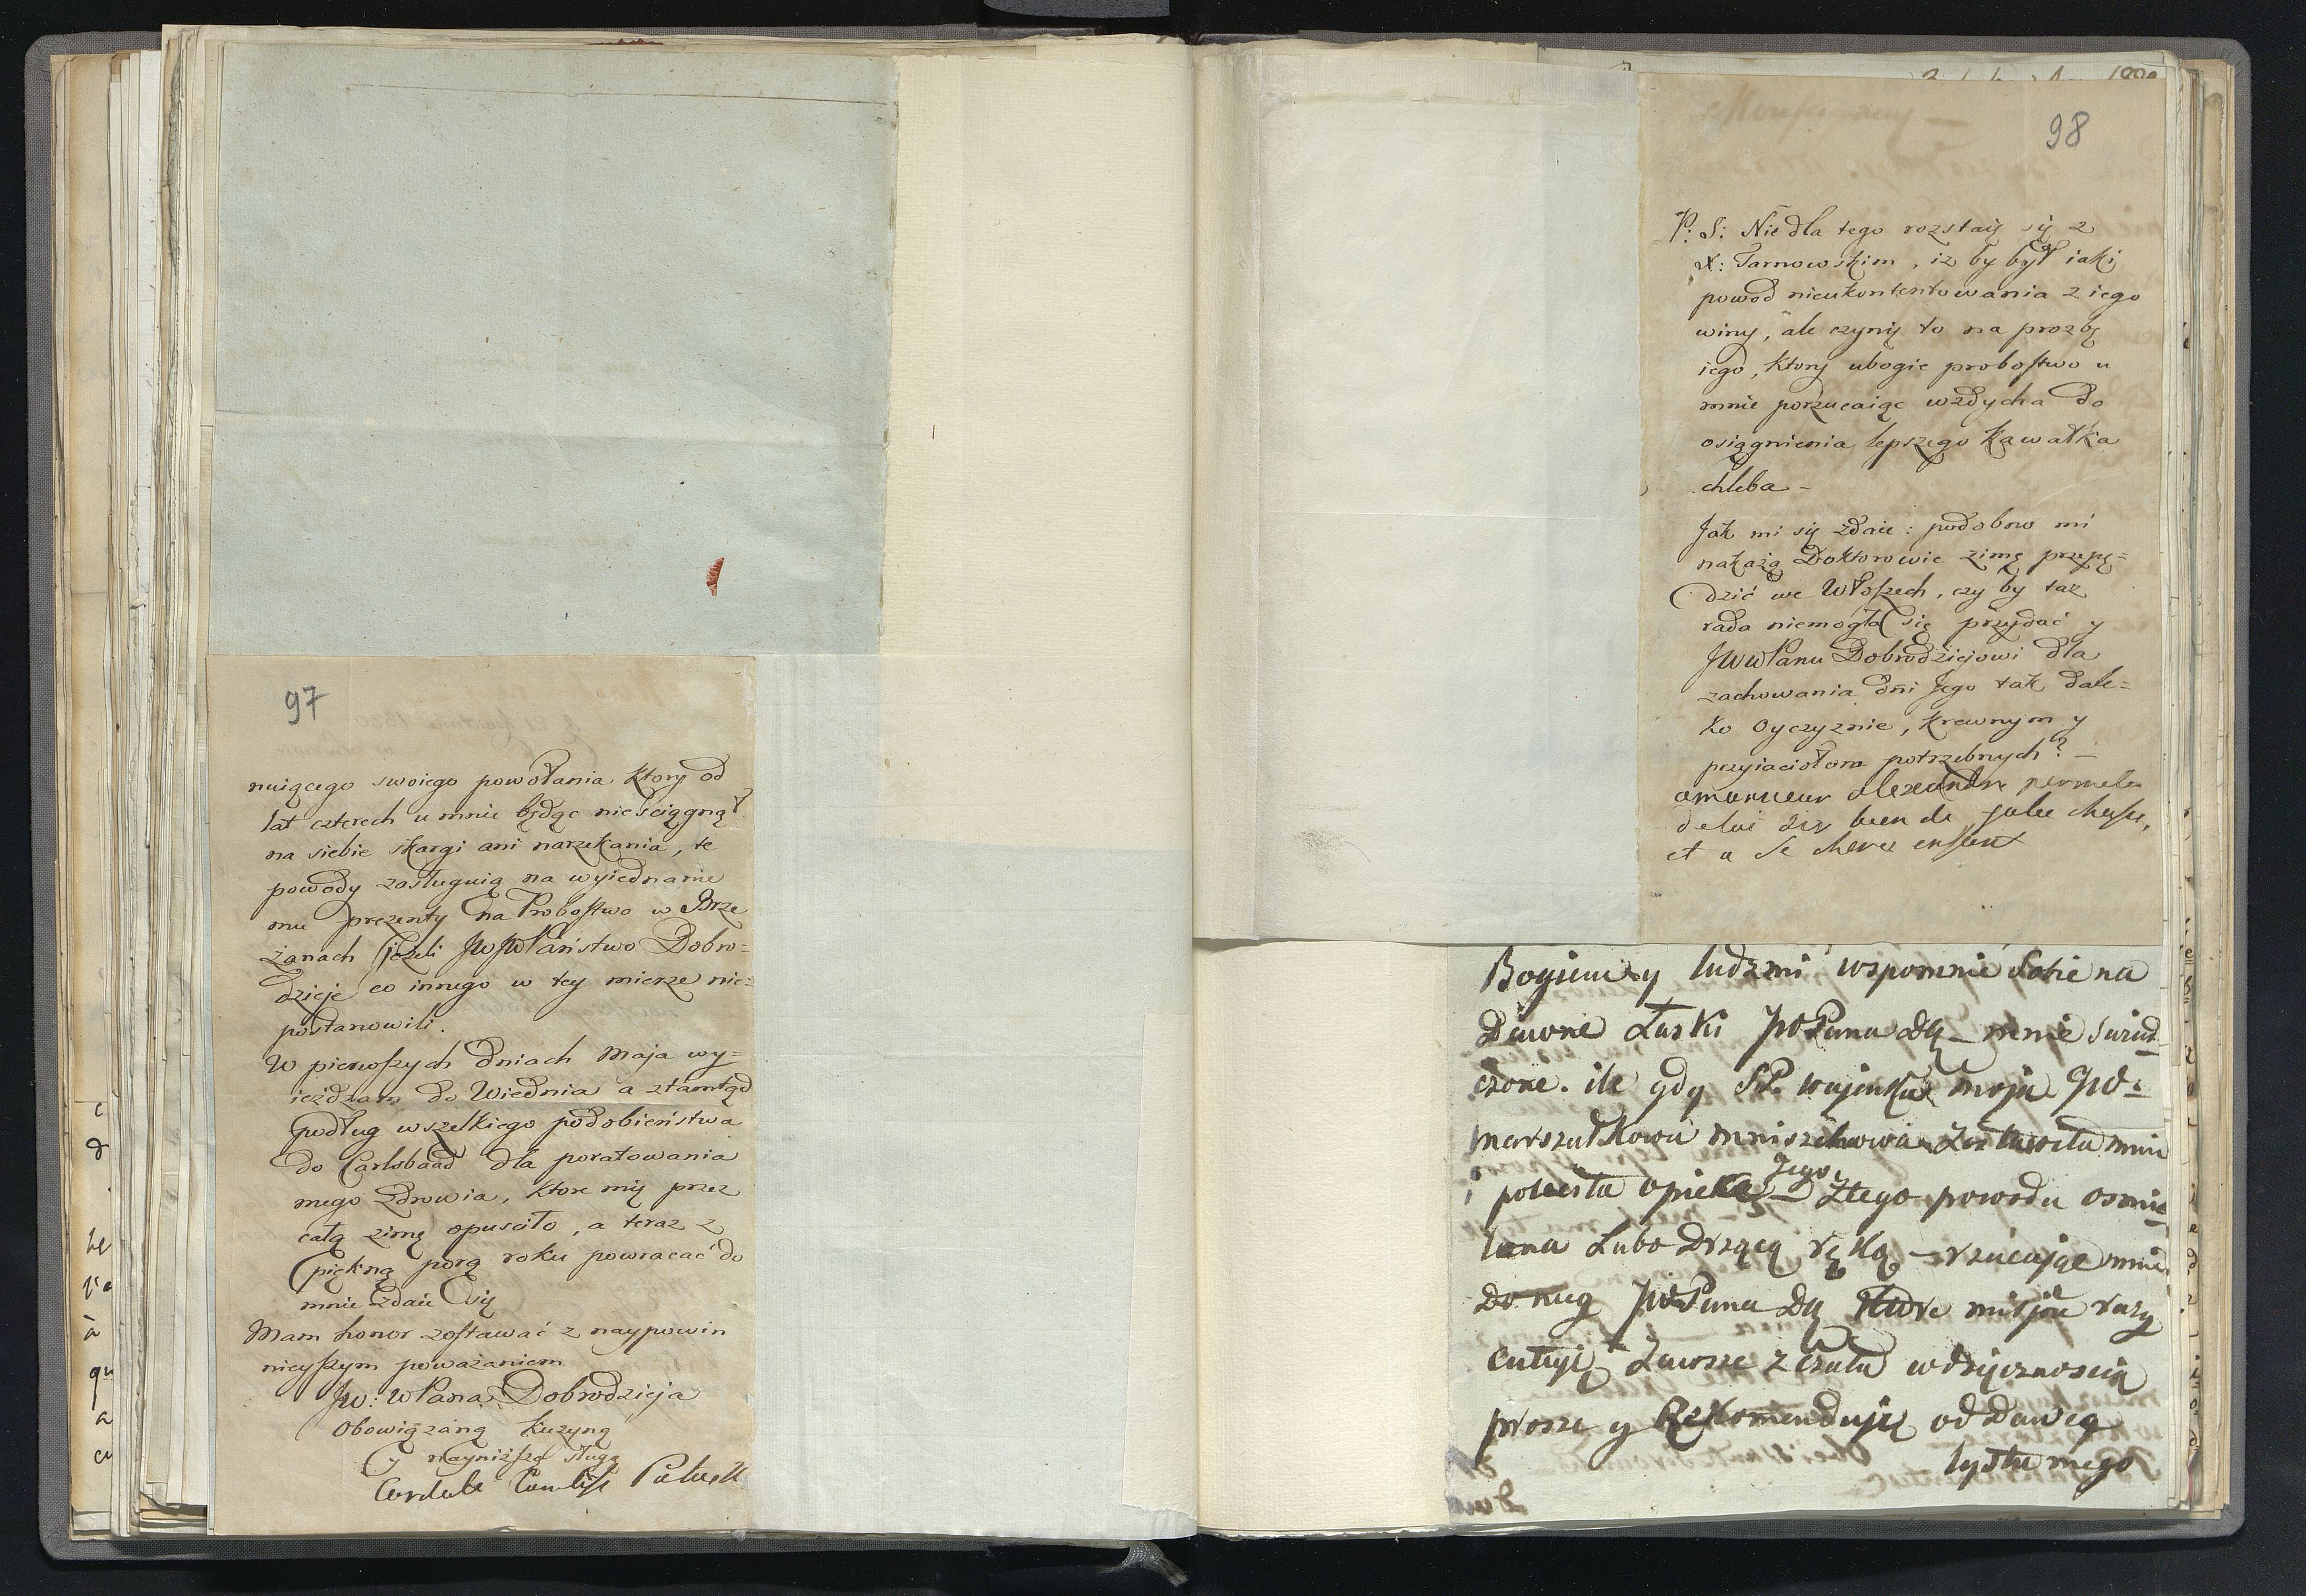 97
nuiącego swoiego powołania ktory od
lat czterech u mnie będąc nie sciągnął
na siebie skargi ani narzekania, te
powody zasługuią na wyiednanie
mu prezenty na Probostwo w Brze
żanach jeżeli JWJWPaństwo Dobro=
dzieje co innego w tey mierze nie=
postanowili.
W pierwszych dniach Maja wy=
ieżdzam do Wiednia a ztamtąd
podług wszelkiego podobieństwa
do Carlsbaad dla poratowania
mego zdrowia, ktore mię przez
całą zimę opusciło, a teraz z
piękną porą roku powracać do
mnie zdaie się
Mam honor zostawać z naypowin
nieyszym poważaniem
JW: WPana Dobrodzieja
obowiązaną kuzyną
y nayniższą sługą
98
P: S: Nie dla tego rozstaię się z
X: Tarnowskim, iz by był iaki
powod nieukontentowania z iego
winy, ale czynię to na prozbę
iego, ktory ubogie probostwo u
mnie porzucaiąc wzdycha do
osiągnienia lepszego kawałka
chleba –
Jak mi się zdaie: podobno mi
nakażą Doktorowie zimę przepę=
dzić we Włoszech, czy by taz
rada niemogła się przydać y
JWWPanu Dobrodziejowi dla
zachowania dni Jego tak dale=
ko Oyczyznie, krewnym y
przyiaciołom potrzebnych? –
alexandre permeles
bien de
et a chere enfent
Bogiem y ludzmi wspomnie Sobie na
Dawne Łaski JWPana Dy – mnie swiad
czone. ile gdy SP. wujenka moja JW=
marszałkowa mniszchowa zostawiła mnie
i poleciła opiekę Jego, – Ztego powodu osmie
lona Lubo Drzącą ręką – rzucając mnie
Do nug JWPana Dy
całuję Zawsze z wdzięcznoscią
prosze y Rekomenduję oddawcę
lystu mego